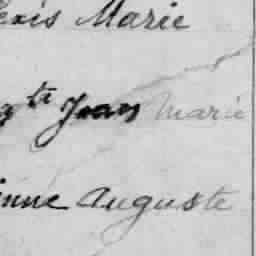 lexis Marie
gte Jean Marie
inne Auguste